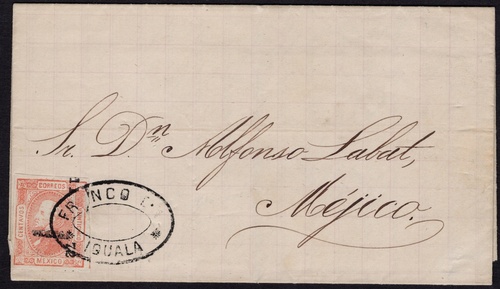 Sr. Dn. Alfonso Labat,
Méjico.
CORREOS
CENTAVOS
MEXICO
FRANCO E
IGUALA